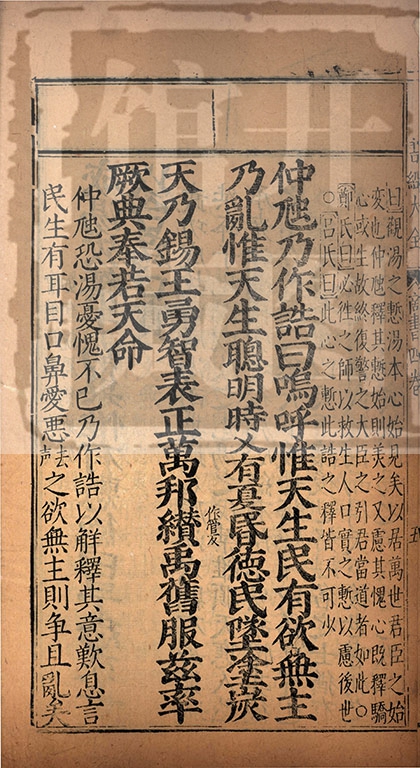 曰觀湯之慙湯本心始見矣以居萬世君臣之始
變也仲虺釋其慙始則美之又慮其愧心既釋驕
心或生故終復警之大臣之引君當道者如此○
鄭氏曰必徃之師以救生人口實之慙以慮後世
○呂氏曰此心之慙此誥之釋皆不可少
仲虺乃作誥曰嗚呼惟天生民有欲無主
乃亂惟天生聰明時乂有夏昏德民墜塗炭
天乃錫王勇智表正萬邦纉作管反禹舊服茲率
厥典奉若天命
仲虺恐湯憂愧不已乃作誥以解釋其意歎息言
民生有耳目口鼻愛惡去聲之欲無主則争且亂矣